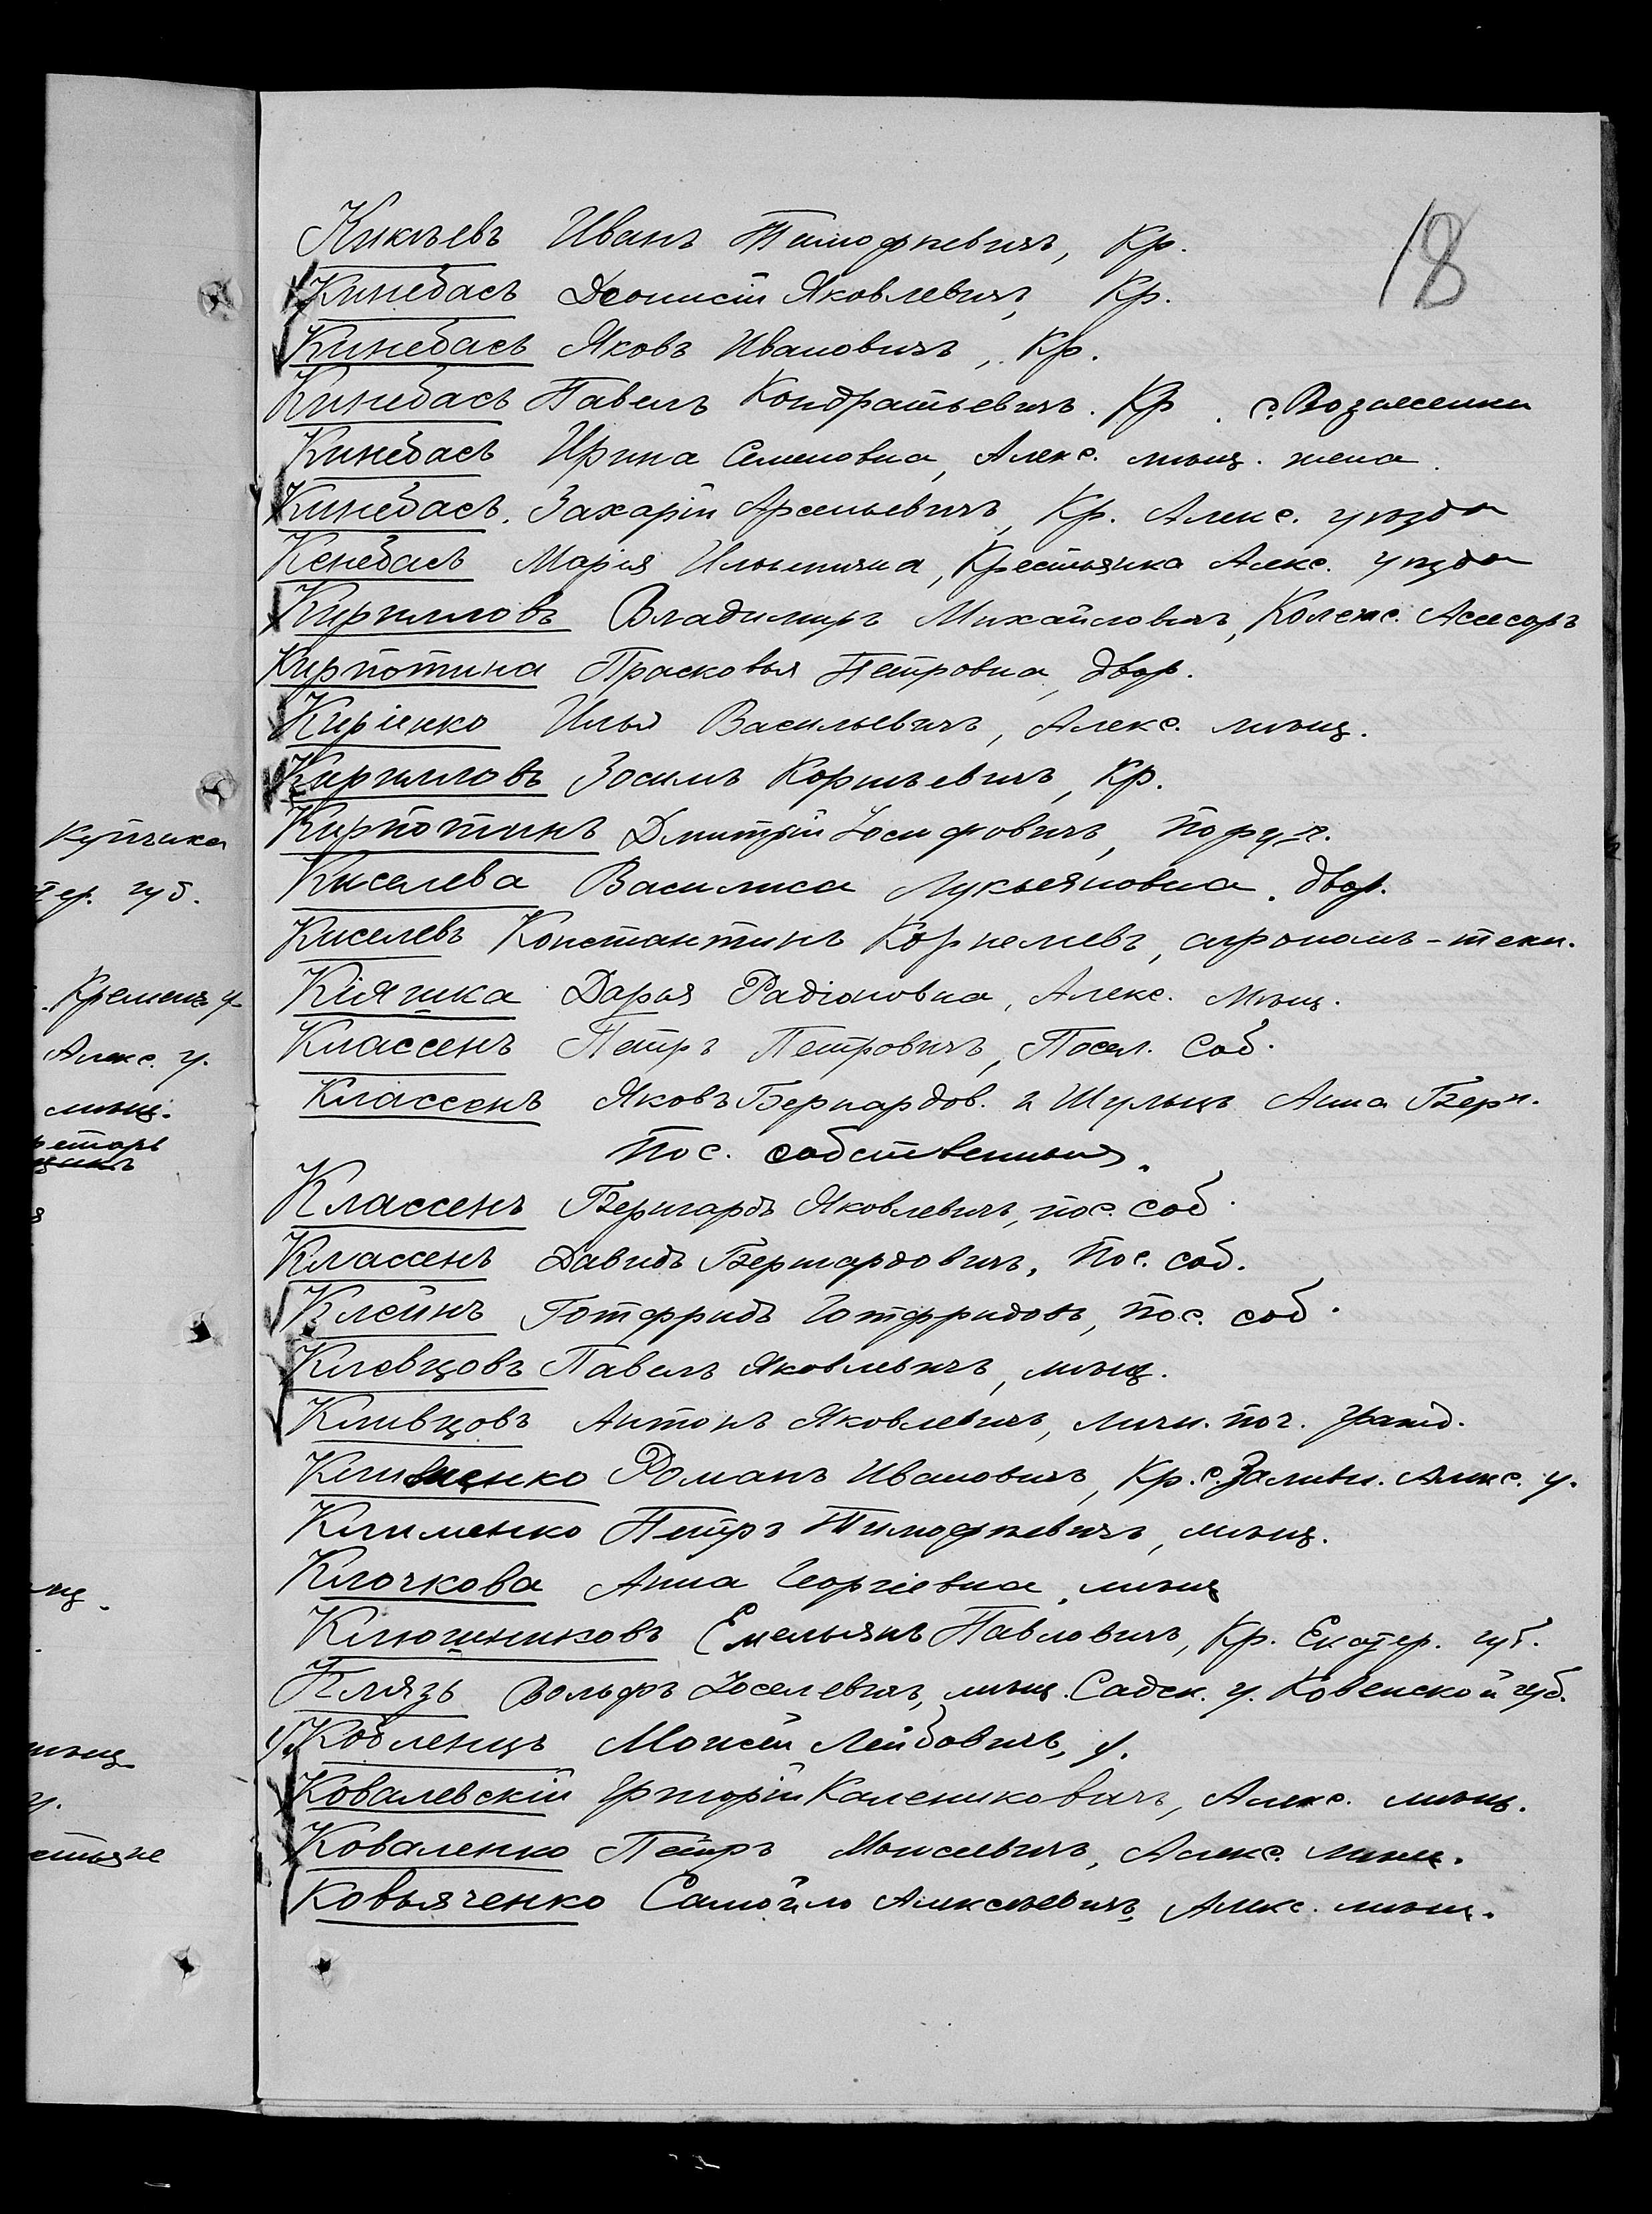 18
Кикъевъ Иванъ Тимофѣевичъ, Кр.
Кинебасъ Діонисій Яковлевичъ, Кр.
Кинебасъ Яковъ Ивановичъ, Кр.
Кинебасъ Павелъ Кондратьевичъ. Кр. с. Вознесенки
Кинебасъ Ирина Семеновна, Алекс. мѣщ. жена.
Кинебасъ. Захарій Арсеньевичъ, Кр. Алекс. уѣзда
Кенебасъ Марія Ильинична, Крестьянка Алекс. уѣзда
Кирилловъ Владимиръ Михайловичъ, Колежс. Асессоръ
Кирпотина Прасковья Петровна, двор.
Киріенко Илья Васильевичъ, Алекс. мѣщ.
Кирилловъ Зосимъ Корнѣевичъ, Кр.
Кирпотинъ Дмитрій Іосифовичъ, поруч.
Киселева Василиса Лукьяновна. двор.
Киселевъ Константинъ Корнелиевъ, агрономъ-техн.
Кіяшка Дарья Радіоновна, Алекс. Мѣщ.
Классенъ Петръ Петровичъ, Посел. Соб.
Классенъ Яковъ Бернардов. и Шульцъ Анна Берн.
Пос. собственники.
Классенъ Бернгардъ Яковлевичъ, пос. соб.
Классенъ Давидъ Бернгардовичъ, Пос. соб.
Клейнъ Готфридъ Готфридовъ, пос. соб.
Клевцовъ Павелъ Яковлевичъ, мѣщ.
Кливцовъ Антонъ Яковлевичъ, личн. поч. гражд.
Клименко Романъ Ивановичъ, Кр. с. Заливн. Алекс. у.
Клименко Петръ Тимофѣевичъ, мѣщ.
Клочкова Анна Георгіевна, мѣщ
Клюшниковъ Емельянъ Павловичъ, Кр. Екатер. губ.
Князь Вольфъ Іоселевичъ, мѣщ. Садск. у. Ковенской губ.
Кобленцъ Моисей Лейбовичъ, у.
Ковалевскій Григорій Калениковичъ, Алекс. мѣщ.
Коваленко Петръ Моисеевичъ, Алекс. мѣщ.
Ковьяченко Самойло Алексѣевичъ, Алекс. мѣщ.
Купчика
тер. губ.
Кременч. у.
Алекс. у.
мѣщ.
етарь
мѣщ
у.
естьяне